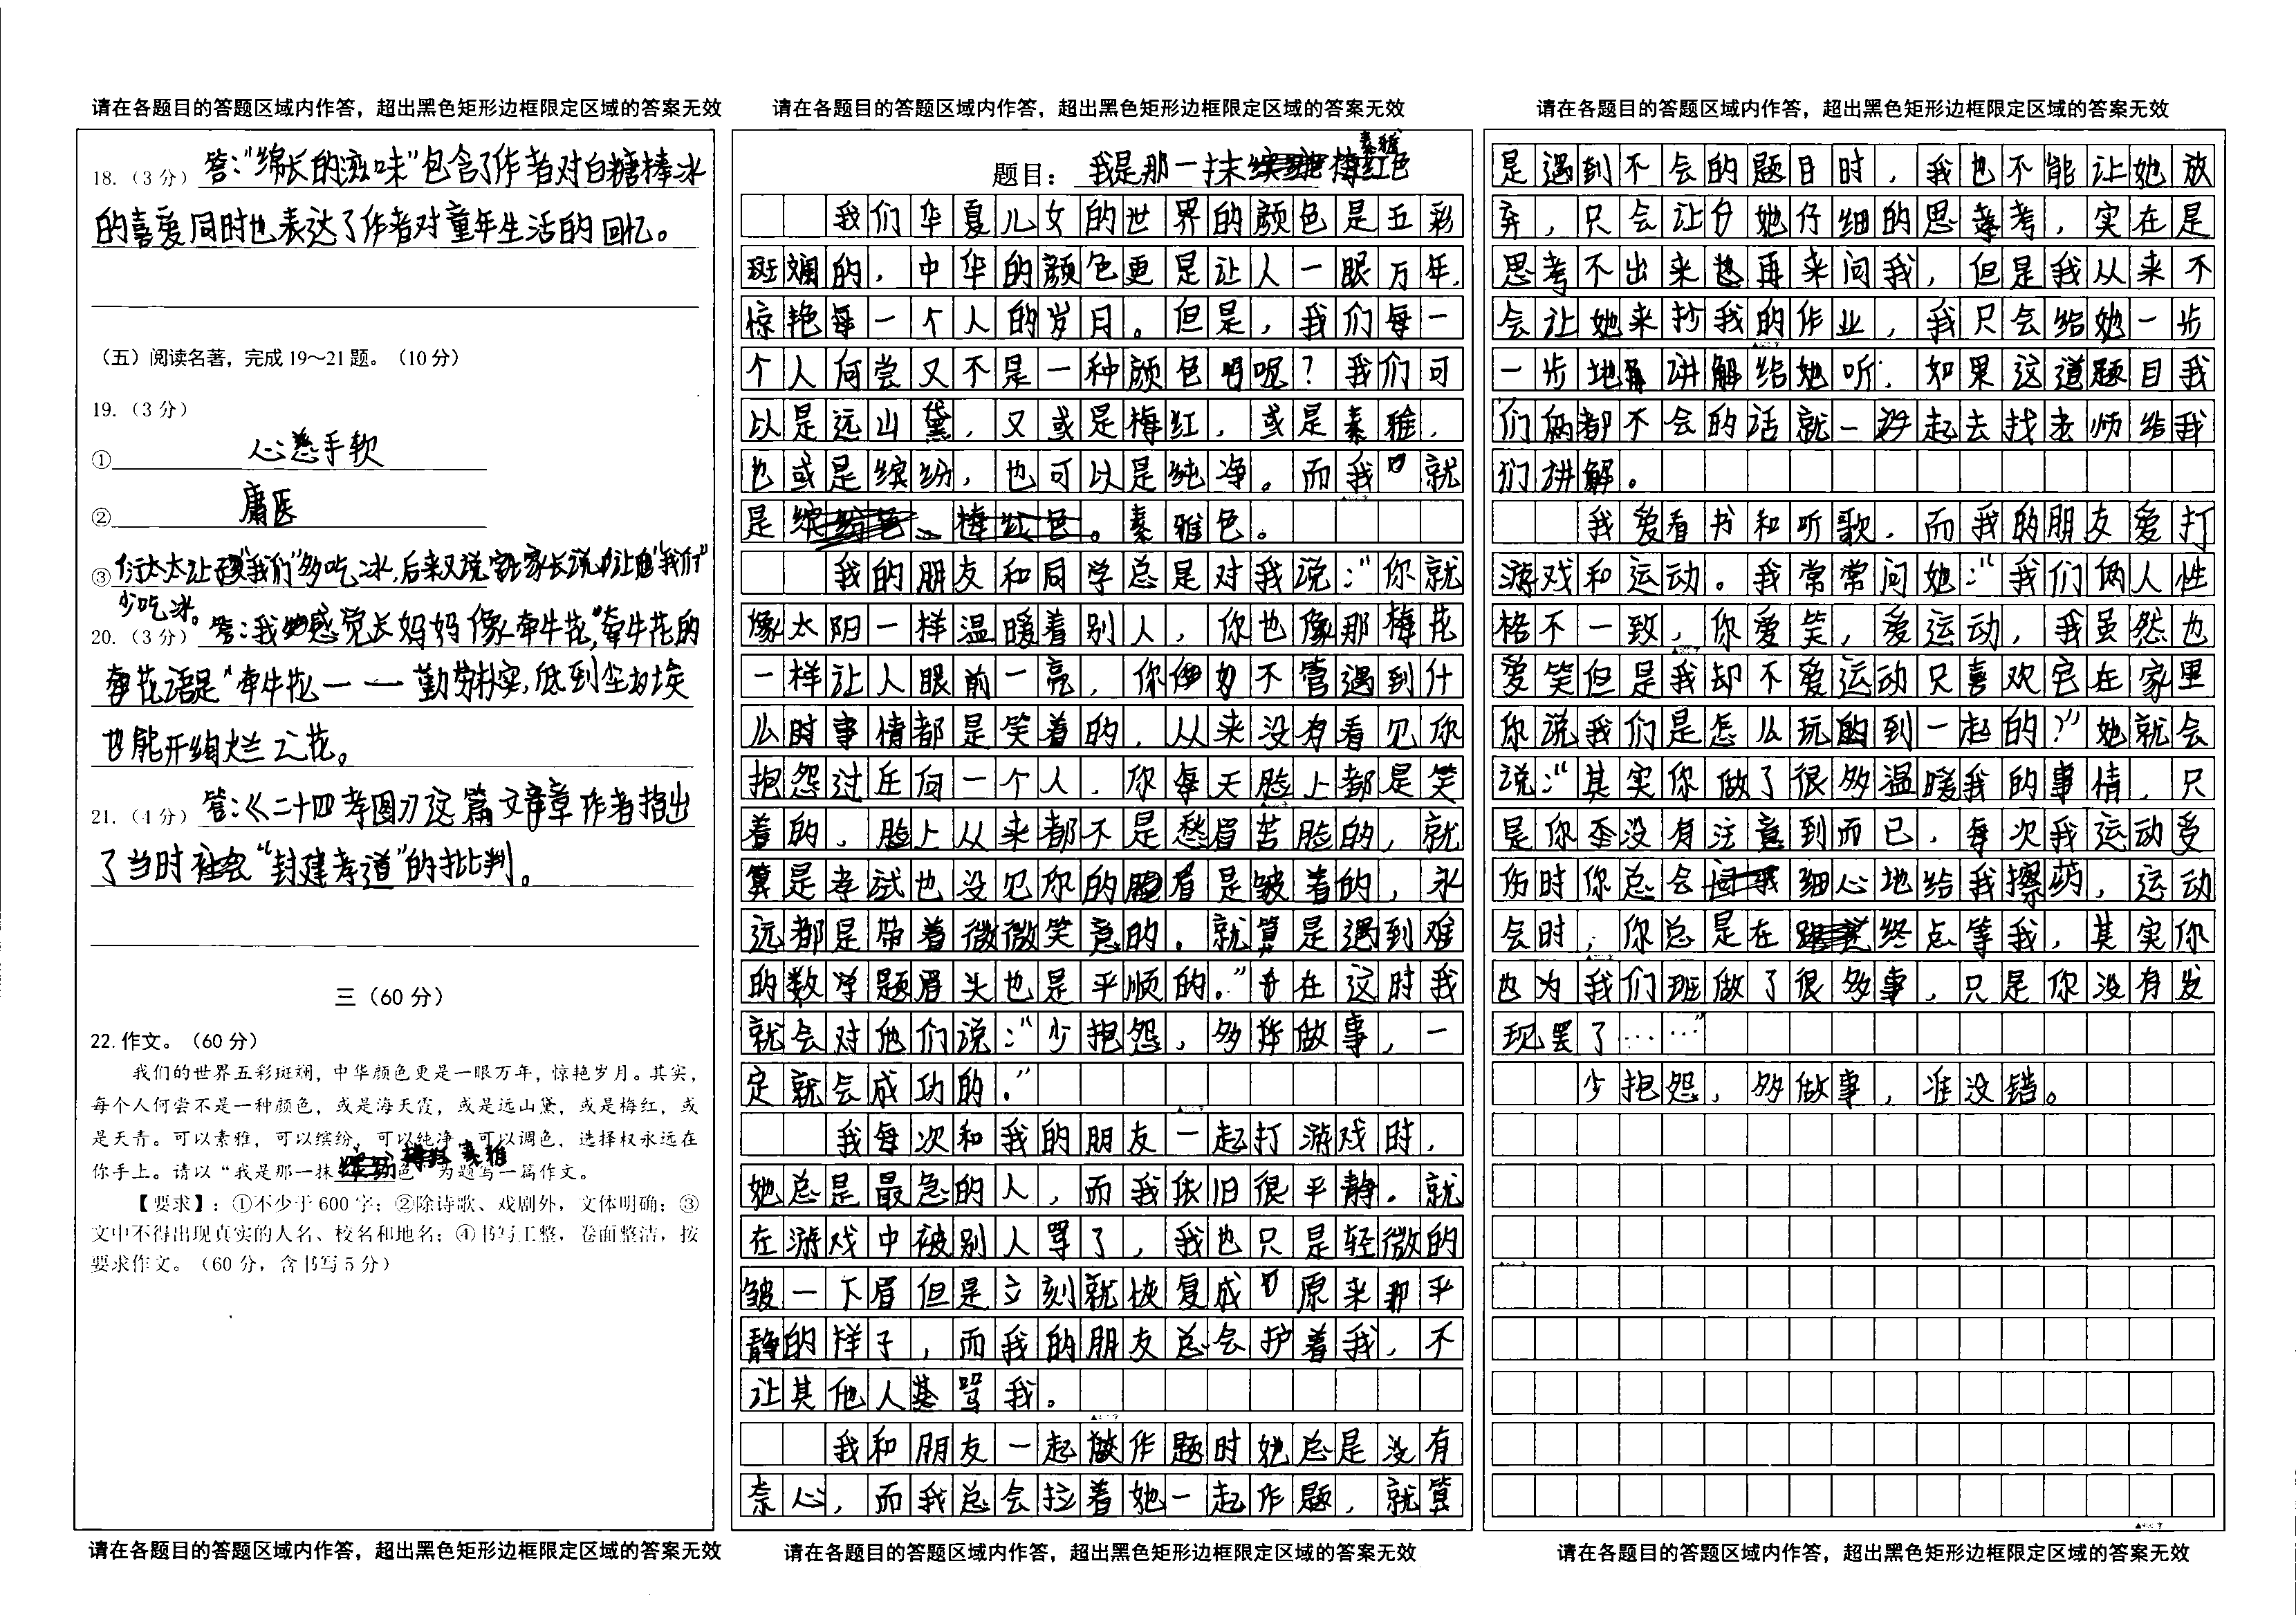 请在各题目的答题区域内作答，超出黑色矩形边框限定区域的答案无效
18.（3分）答："绵长的滋味"包含了作者对白糖棒冰
的喜爱同时也表达了作者对童年生活的回忆。
（五）阅读名著，完成19～21题。（10分）
19.（3分）
①心慈手软
②庸医
③衍太太让"我们"多吃冰,后来又说家长说让"我们"
少吃冰。
20.（3分）答：我感觉长妈妈像牵牛花,牵牛花的
花语是"牵牛花——勤劳朴实,低到尘埃
也能开绚烂之花。
21.（4分）答：《二十四孝图》这篇文章作者指出
了当时社会"封建孝道"的批判。
三（60分）
22.作文。（60分）
我们的世界五彩斑斓，中华颜色更是一眼万年，惊艳岁月。其实，
每个人何尝不是一种颜色，或是海天霞，或是远山黛，或是梅红，或
是天青。可以素雅，可以缤纷，可以纯净，可以调色，选择权永远在
你手上。请以"我是那一抹素雅色"为题写一篇作文。
【要求】：①不少于600字；②除诗歌、戏剧外，文体明确；③
文中不得出现真实的人名、校名和地名；④书写工整，卷面整洁，按
要求作文。（60分，含书写5分）
请在各题目的答题区域内作答，超出黑色矩形边框限定区域的答案无效
请在各题目的答题区域内作答，超出黑色矩形边框限定区域的答案无效
题目：我是那一抹素雅色
我们华夏儿女的世界的颜色是五彩
斑斓的，中华的颜色更是让人一眼万年,
惊艳每一个人的岁月。但是，我们每一
个人何尝又不是一种颜色呢？我们可
以是远山黛，又或是梅红，或是素雅，
也或是缤纷，也可以是纯净。而我就
是素雅色。
我的朋友和同学总是对我说："你就
像太阳一样温暖着别人，你也像那梅花
一样让人眼前一亮，你不管遇到什
么时事情都是笑着的，从来没有看见你
抱怨过任何一个人，你每天脸上都是笑
着的，脸上从来都不是愁眉苦脸的，就
算是考试也没见你的眉是皱着的，永
远都是带着微微笑意的。就算是遇到难
的数学题眉头也是平顺的。"在这时我
就会对他们说："少抱怨，多做事，一
定就会成功的。"
我每次和我的朋友一起打游戏时，
她总是最急的人，而我依旧很平静。就
在游戏中被别人骂了，我也只是轻微的
皱一下眉但是立刻就恢复成原来那平
静的样子，而我的朋友总会护着我，不
让其他人骂我。
我和朋友一起做作题时她总是没有
奈心，而我总会拉着她一起作题，就算
请在各题目的答题区域内作答，超出黑色矩形边框限定区域的答案无效
请在各题目的答题区域内作答，超出黑色矩形边框限定区域的答案无效
是遇到不会的题目时，我也不能让她放
弃，只会让她仔细的思考，实在是
思考不出来再来问我，但是我从来不
会让她来抄我的作业，我只会给她一步
一步地讲解给她听，如果这道题目我
们俩都不会的话就一起去找老师给我
们讲解。
我爱看书和听歌，而我的朋友爱打
游戏和运动。我常常问她："我们俩人性
格不一致，你爱笑，爱运动，我虽然也
爱笑但是我却不爱运动只喜欢宅在家里
你说我们是怎么玩的到一起的？"她就会
说："其实你做了很多温暖我的事情，只
是你没有注意到而已，每次我运动受
伤时你总会细心地给我擦药，运动
会时，你总是在终点等我，其实你
也为我们班做了很多事，只是你没有发
现罢了……"
少抱怨，多做事，准没错。
请在各题目的答题区域内作答，超出黑色矩形边框限定区域的答案无效